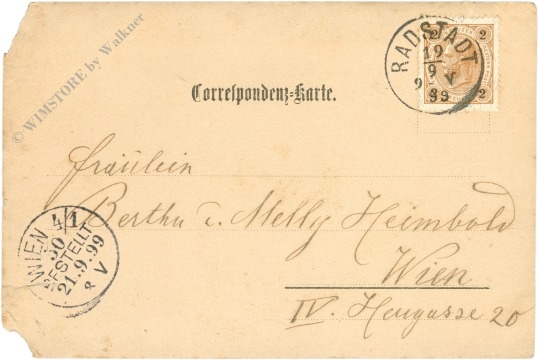 © WIMSTORE by Walkner
2 2
RADSTADT
19
9 V
9 99
2 2
Correspondenz-Karte.
Fräulein
Bertha u. Melly Heimbold
Wien
IV. Heugasse 20
WIEN 4/1
BESTELLT
21.9.99
8 V